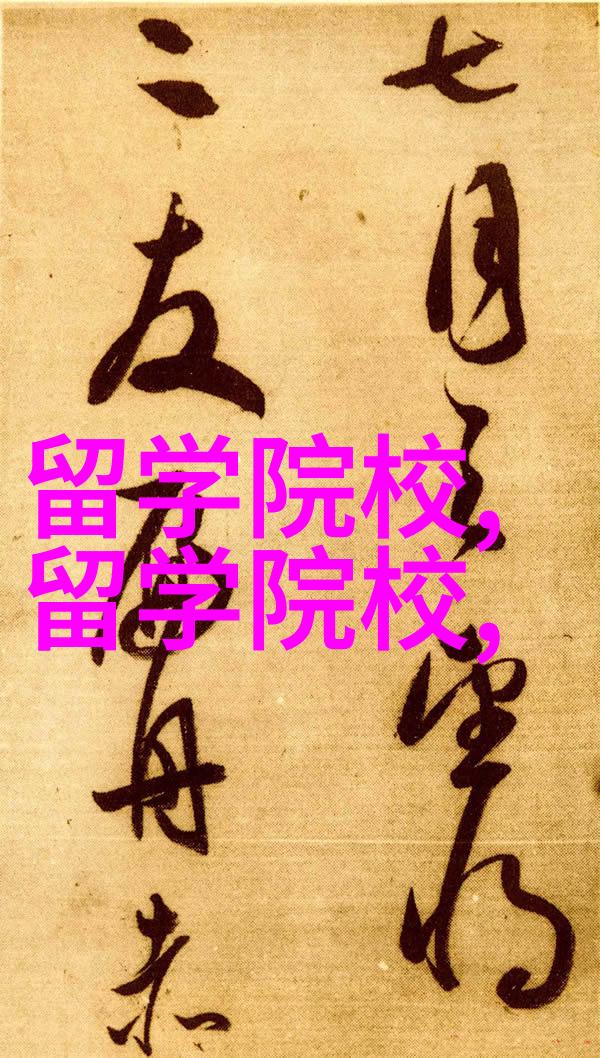 七月望将
二友舟赤
留学院校,
留学院校,